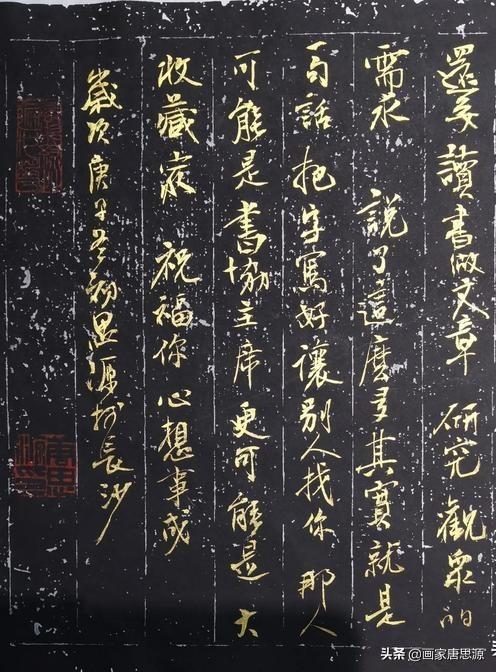 還要讀書做文章 研究觀眾的
需求 說了這麼多其實就是
一句話 把字寫好讓別人找你 那人
可能是書協主席 更可能是大
收藏家 祝福你心想事成
歲次庚子冬初思源於長沙
头条 @画家唐思源